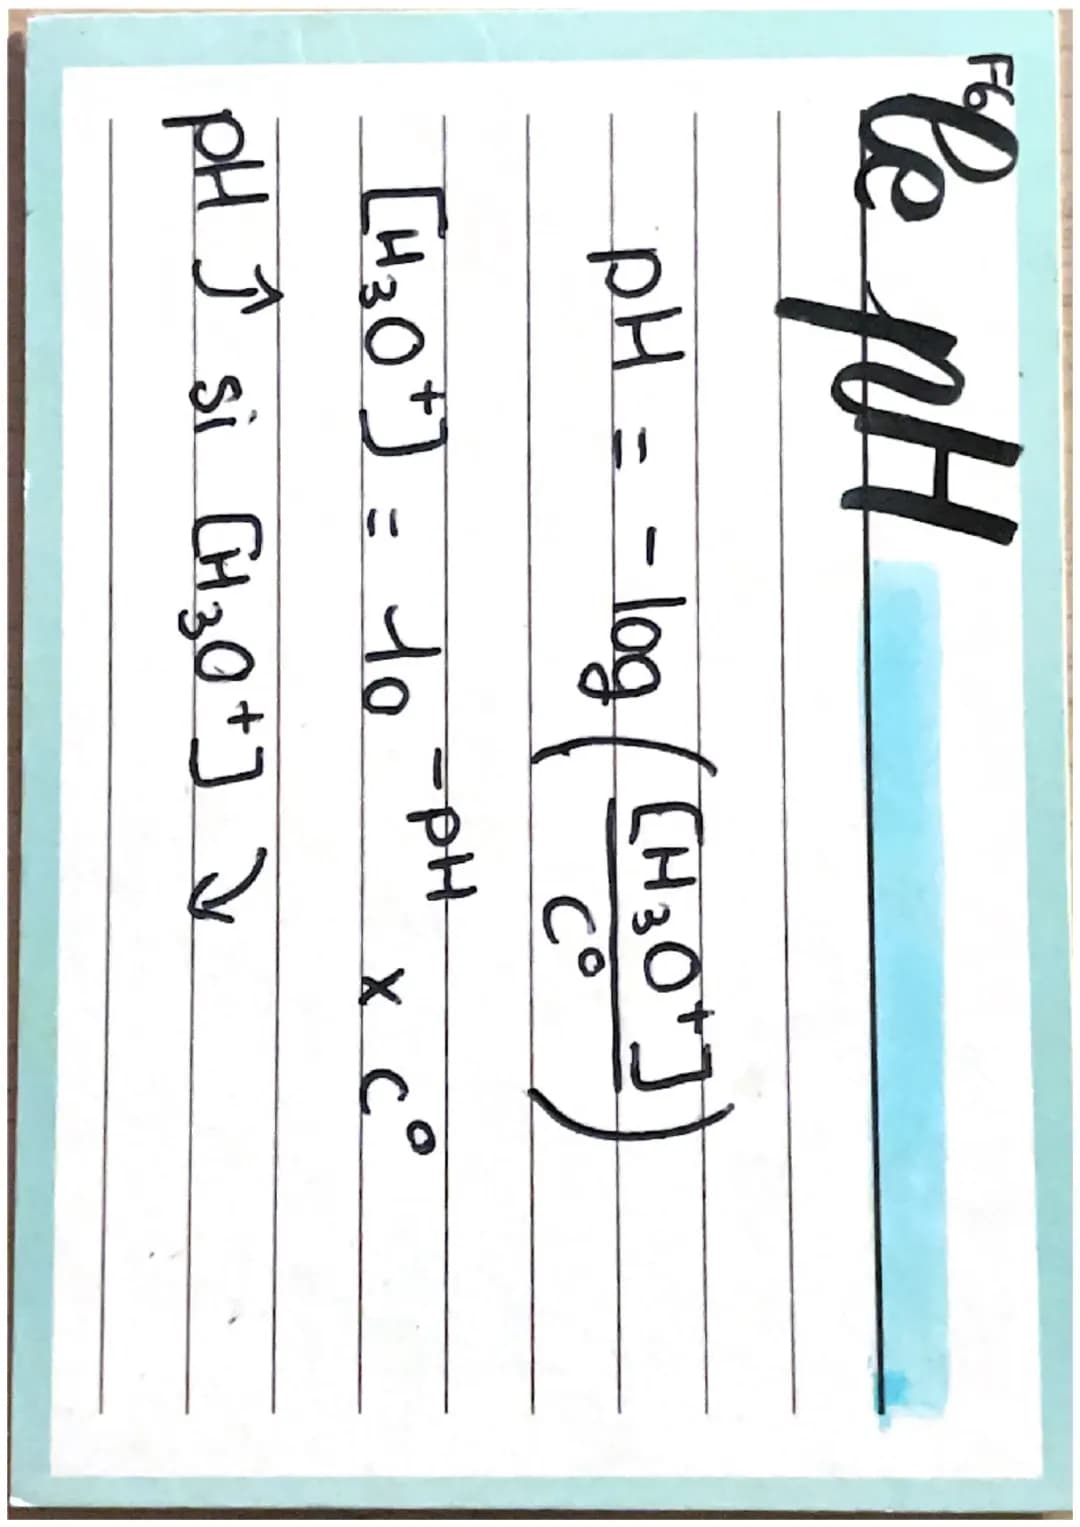 F6
Le pH
pH = - log ( [H₃O⁺] / C° )
[H₃O⁺] = 10⁻ᵖᴴ x C°
pH ↑ si [H₃O⁺] ↓